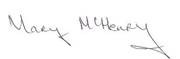 Mary McHenry